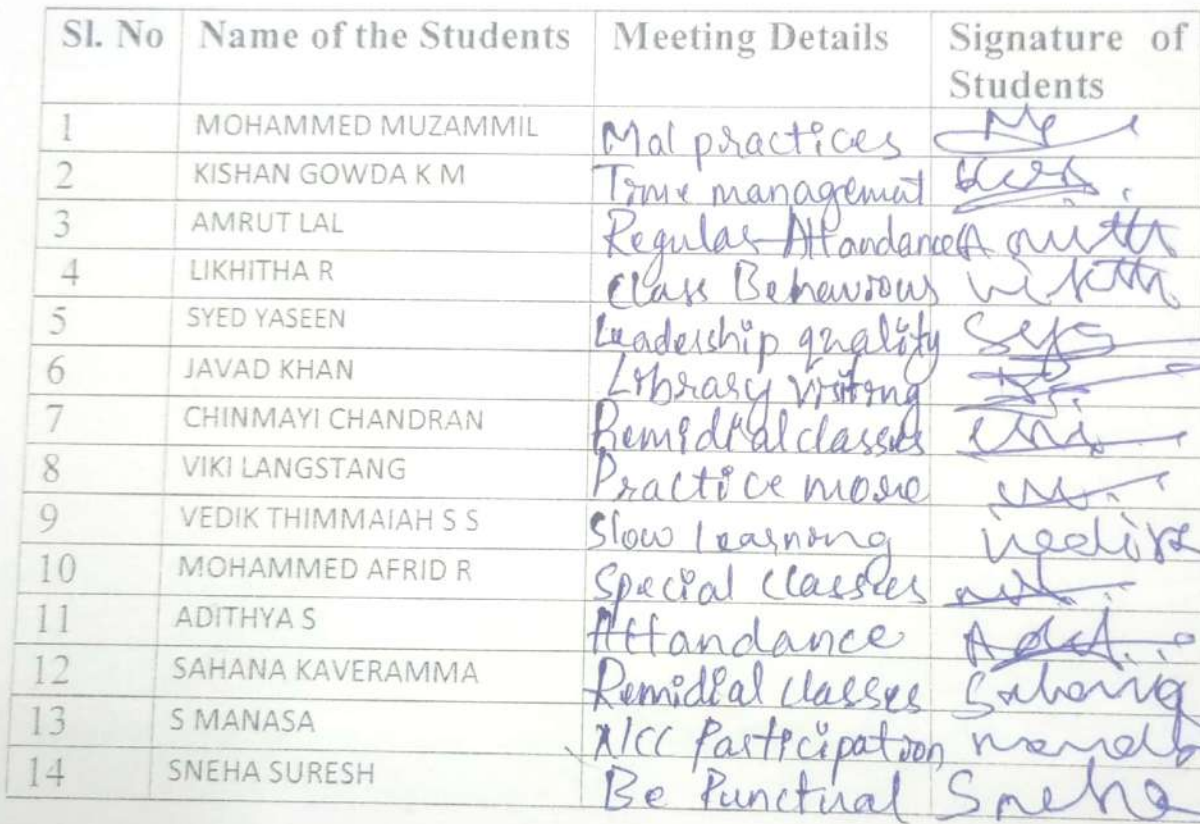 Sl. No Name of the Students Meeting Details Signature of Students
1 MOHAMMED MUZAMMIL Mal practices
2 KISHAN GOWDA K M Time managemut
3 AMRUT LAL Regular Attandance
4 LIKHITHA R Class Behaviour
5 SYED YASEEN Leadership quality
6 JAVAD KHAN Library visiting
7 CHINMAYI CHANDRAN Remidial classes
8 VIKI LANGSTANG Practice more
9 VEDIK THIMMAIAH S S Slow learning
10 MOHAMMED AFRID R Special classes
11 ADITHYA S Attandance
12 SAHANA KAVERAMMA Remidial classes Sahana
13 S MANASA NCC Participation
14 SNEHA SURESH Be Punctual Sneha